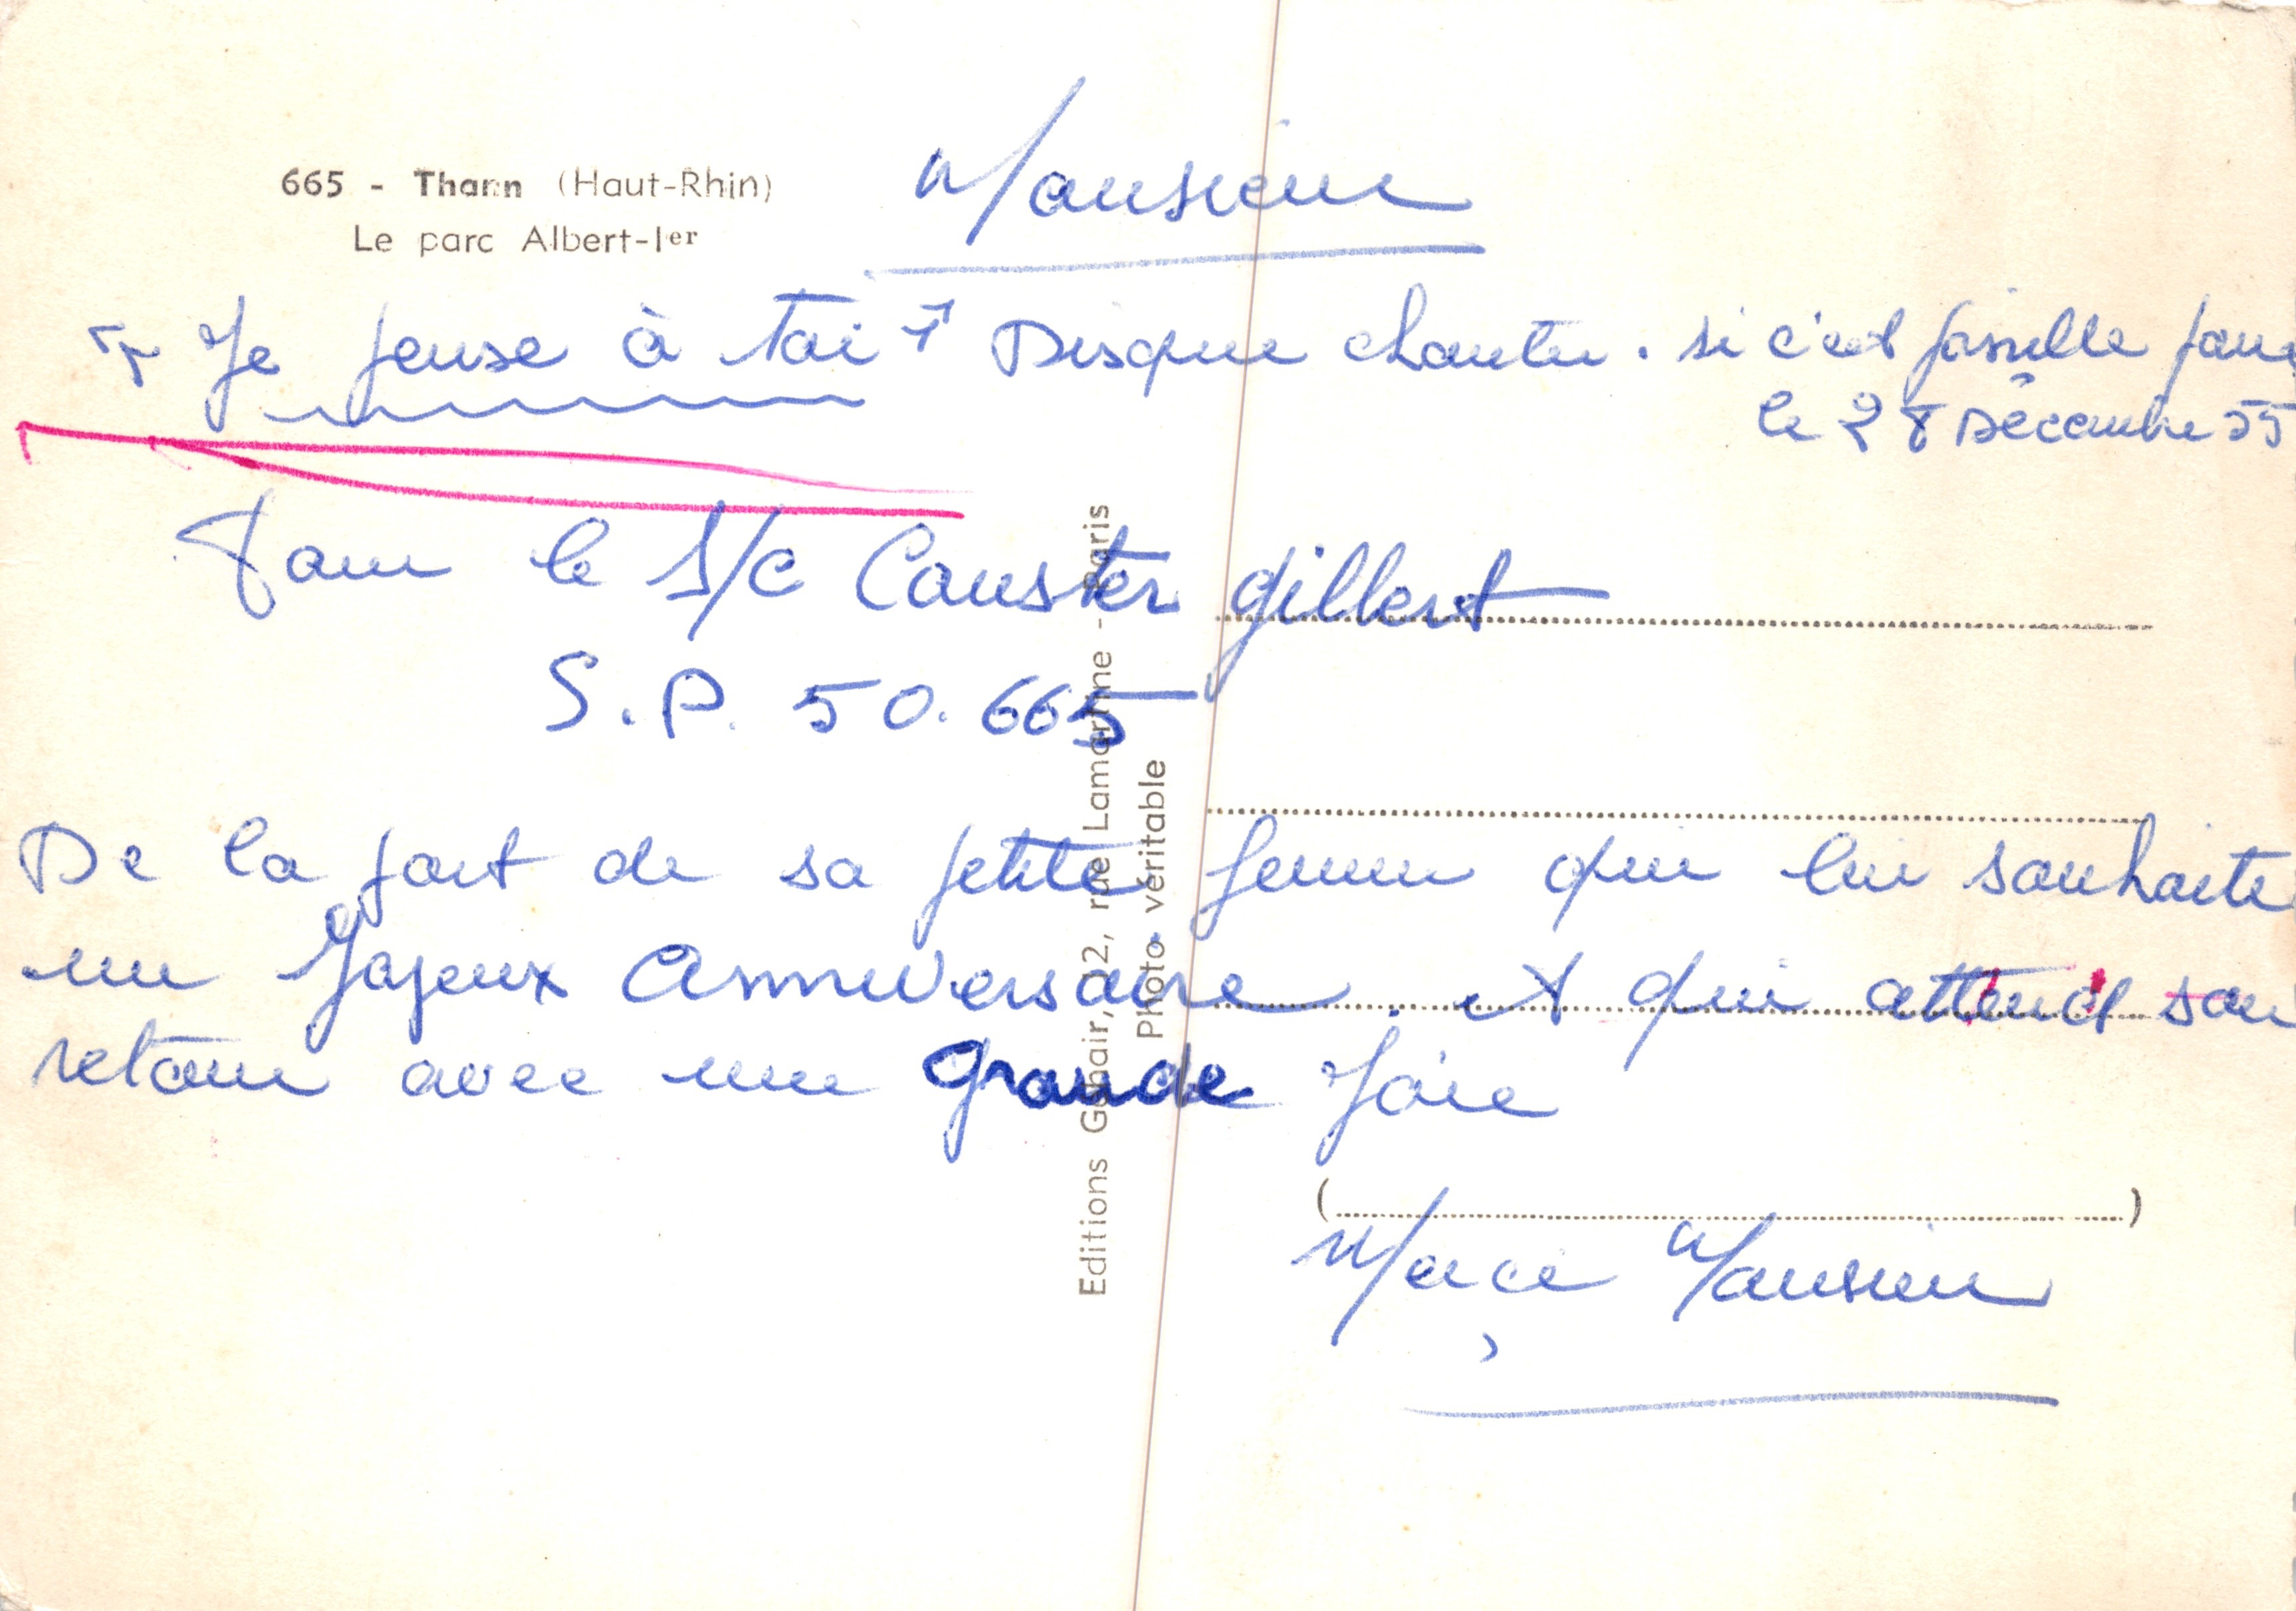 665 - Thann (Haut-Rhin)
Le parc Albert-Ier
Monsieur
" Je pense à toi " Disque chanter. si c'est possible pour
le 28 Décembre 55
Pour le S/C Couster gilbert
S.P. 50.665
De la part de sa petite femme qui lui souhaite
un Joyeux Anniversaire. et qui attend son
retour avec une grande Joie
Merci Monsieur
Editions Gebhair, 12, rue Lamartine - Paris
Photo véritable